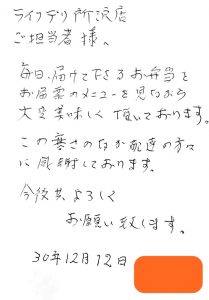 ライフデリ所沢店
ご担当者様。
毎日、届けて下さるお弁当を
お届票のメニューを見ながら
大変美味しく頂いております。
この寒さのなか配達の方々
に感謝しております。
今後共、よろしく
お願い致します。
30年12月12日